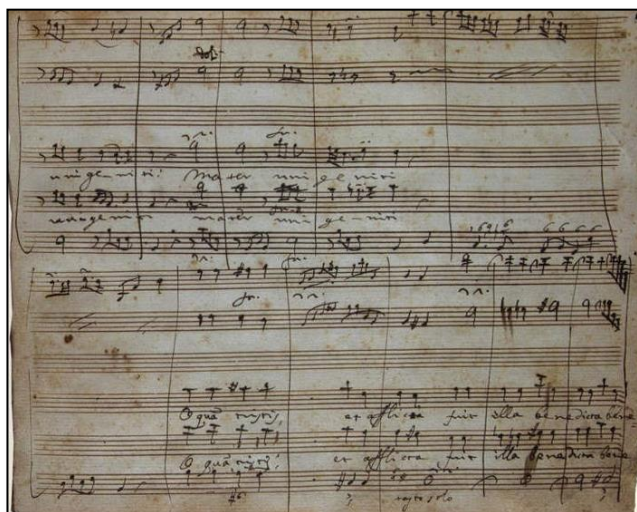 unigeniti! Mater uni ge niti
unigeniti mater uni ge niti
O quã tristis, et afflicta fuit illa benedicta bene
O quã tristis, et afflicta fuit illa benedicta bene
tasto solo